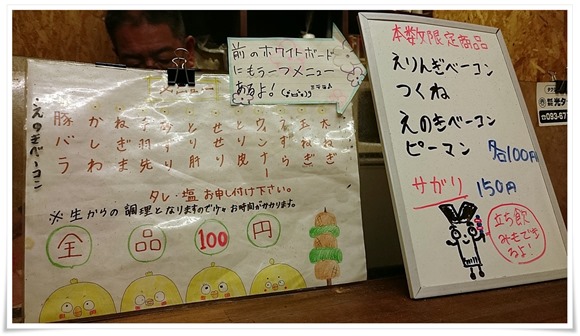 前のホワイトボード
にもう一つメニュー
あるよ!
メニュー
玉ねぎ
ウィンナー
せせり
とり肝
手羽先
ねぎま
かしわ
豚バラ
・えのきベーコン
タレ・塩 お申し付け下さい。
※生からの調理となりますので お時間がかかります。
全品100円
本数限定商品
えりんぎベーコン
つくね
えのきベーコン
ピーマン 各100円
サガリ 150円
立ち飲
みもでき
るよ!